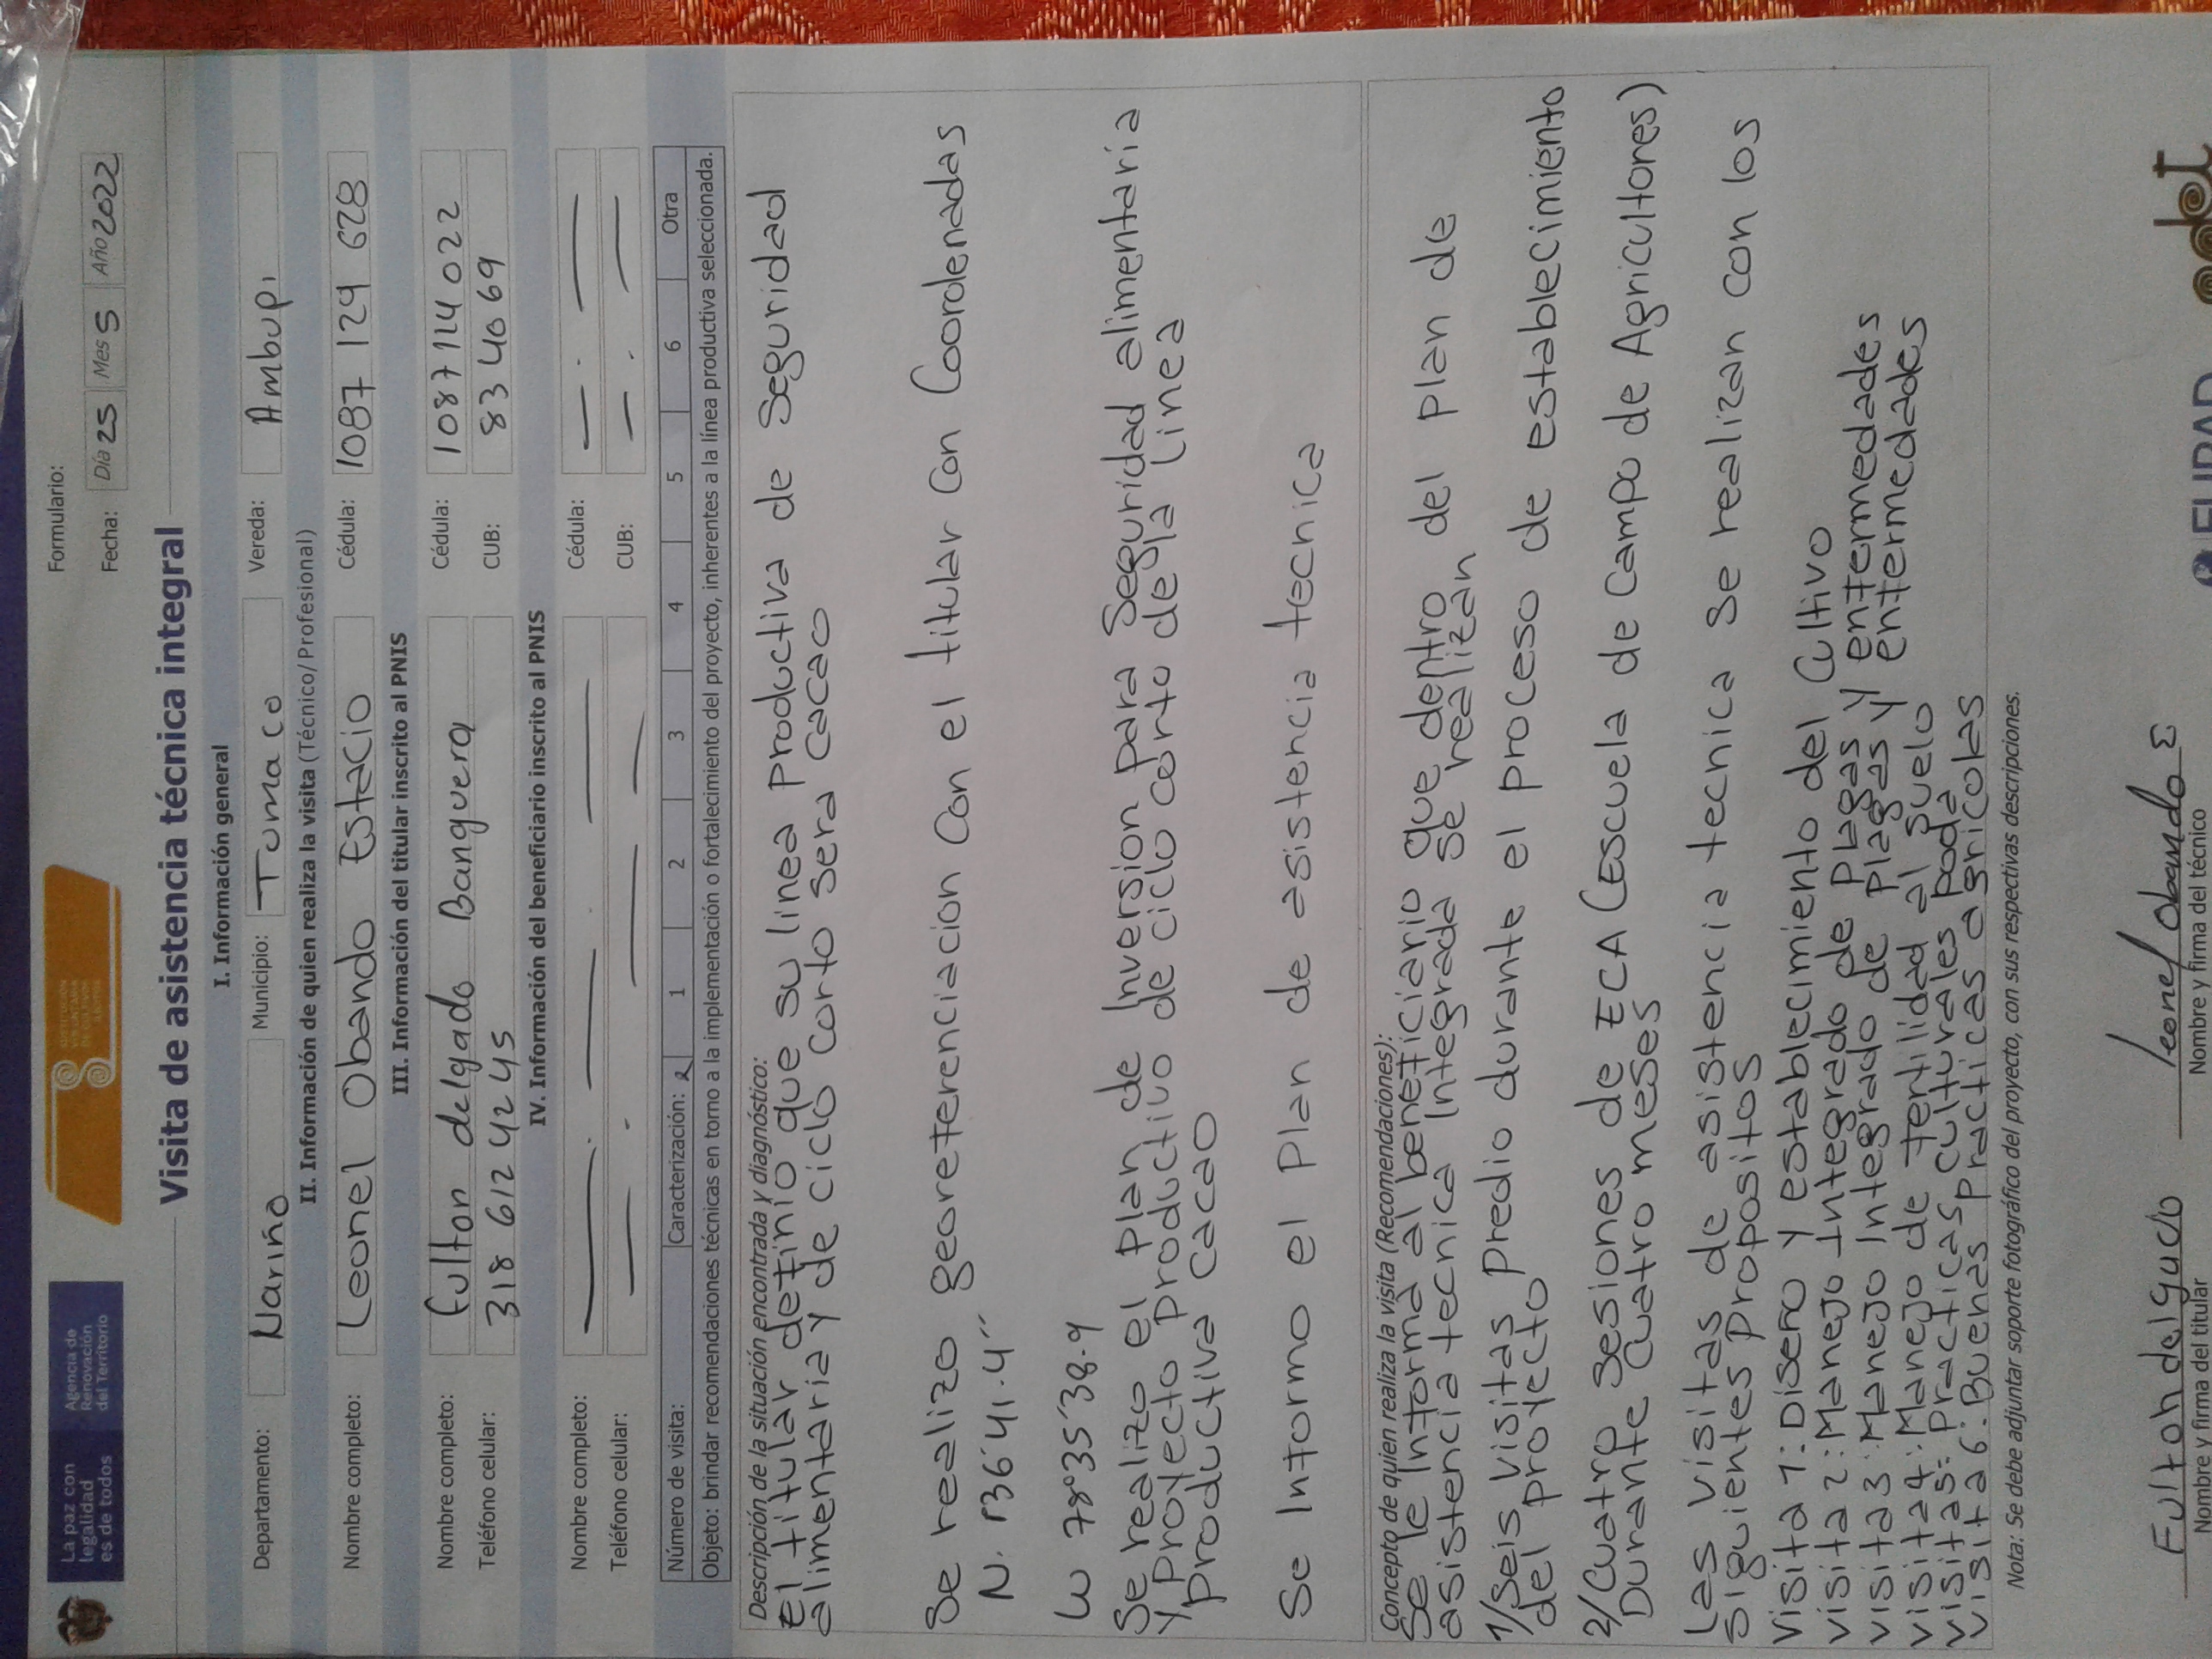 La paz con
legalidad
es de todos
Agencia de
Renovación
del Territorio
SUSTITUCIÓN
VOLUNTARIA
DE CULTIVOS
ILÍCITOS
Formulario:
Fecha: Día 25 Mes 5 Año 2022
Visita de asistencia técnica integral
I. Información general
Departamento: Nariño Municipio: Tumaco Vereda: Ambupi
II. Información de quien realiza la visita (Técnico/Profesional)
Nombre completo: Leonel Obando Estacio Cédula: 1087 124 628
III. Información del titular inscrito al PNIS
Nombre completo: Fulton delgado Banguera Cédula: 1087114022
Teléfono celular: 318 612 4245 CUB: 8340 69
IV. Información del beneficiario inscrito al PNIS
Nombre completo: Cédula:
Teléfono celular: CUB:
Número de visita: Caracterización: 1 2 3 4 5 6 Otra
Objeto: brindar recomendaciones técnicas en torno a la implementación o fortalecimiento del proyecto, inherentes a la línea productiva seleccionada.
Descripción de la situación encontrada y diagnóstico:
El titular definio que su linea productiva de Seguridad
alimentaria y de ciclo corto sera cacao
Se realizo georeferenciacion con el titular con Coordenadas
N. 1°36'41.4"
W 78°35'38.9
Se realizo el plan de Inversion para Seguridad alimentaria
y proyecto productivo de ciclo corto de la linea
productiva cacao
Se Informo el Plan de asistencia tecnica
Concepto de quien realiza la visita (Recomendaciones):
Se le Informa al beneficiario que dentro del plan de
asistencia tecnica Integrada se realizan
1/Seis visitas predio durante el proceso de establecimiento
del proyecto
2/Cuatro Sesiones de ECA (Escuela de Campo de Agricultores)
Durante Cuatro meses
Las visitas de asistencia tecnica se realizan con los
siguientes propositos
Visita 1: Diseño y establecimiento del Cultivo
Visita 2: Manejo Integrado de Plagas y enfermedades
Visita 3: Manejo Integrado de plagas y enfermedades
Visita 4: Manejo de fertilidad al suelo
Visita 5: Practicas culturales poda
Visita 6: Buenas practicas agricolas
Nota: Se debe adjuntar soporte fotográfico del proyecto, con sus respectivas descripciones.
Fulton delgado leonel obando E
Nombre y firma del titular Nombre y firma del técnico